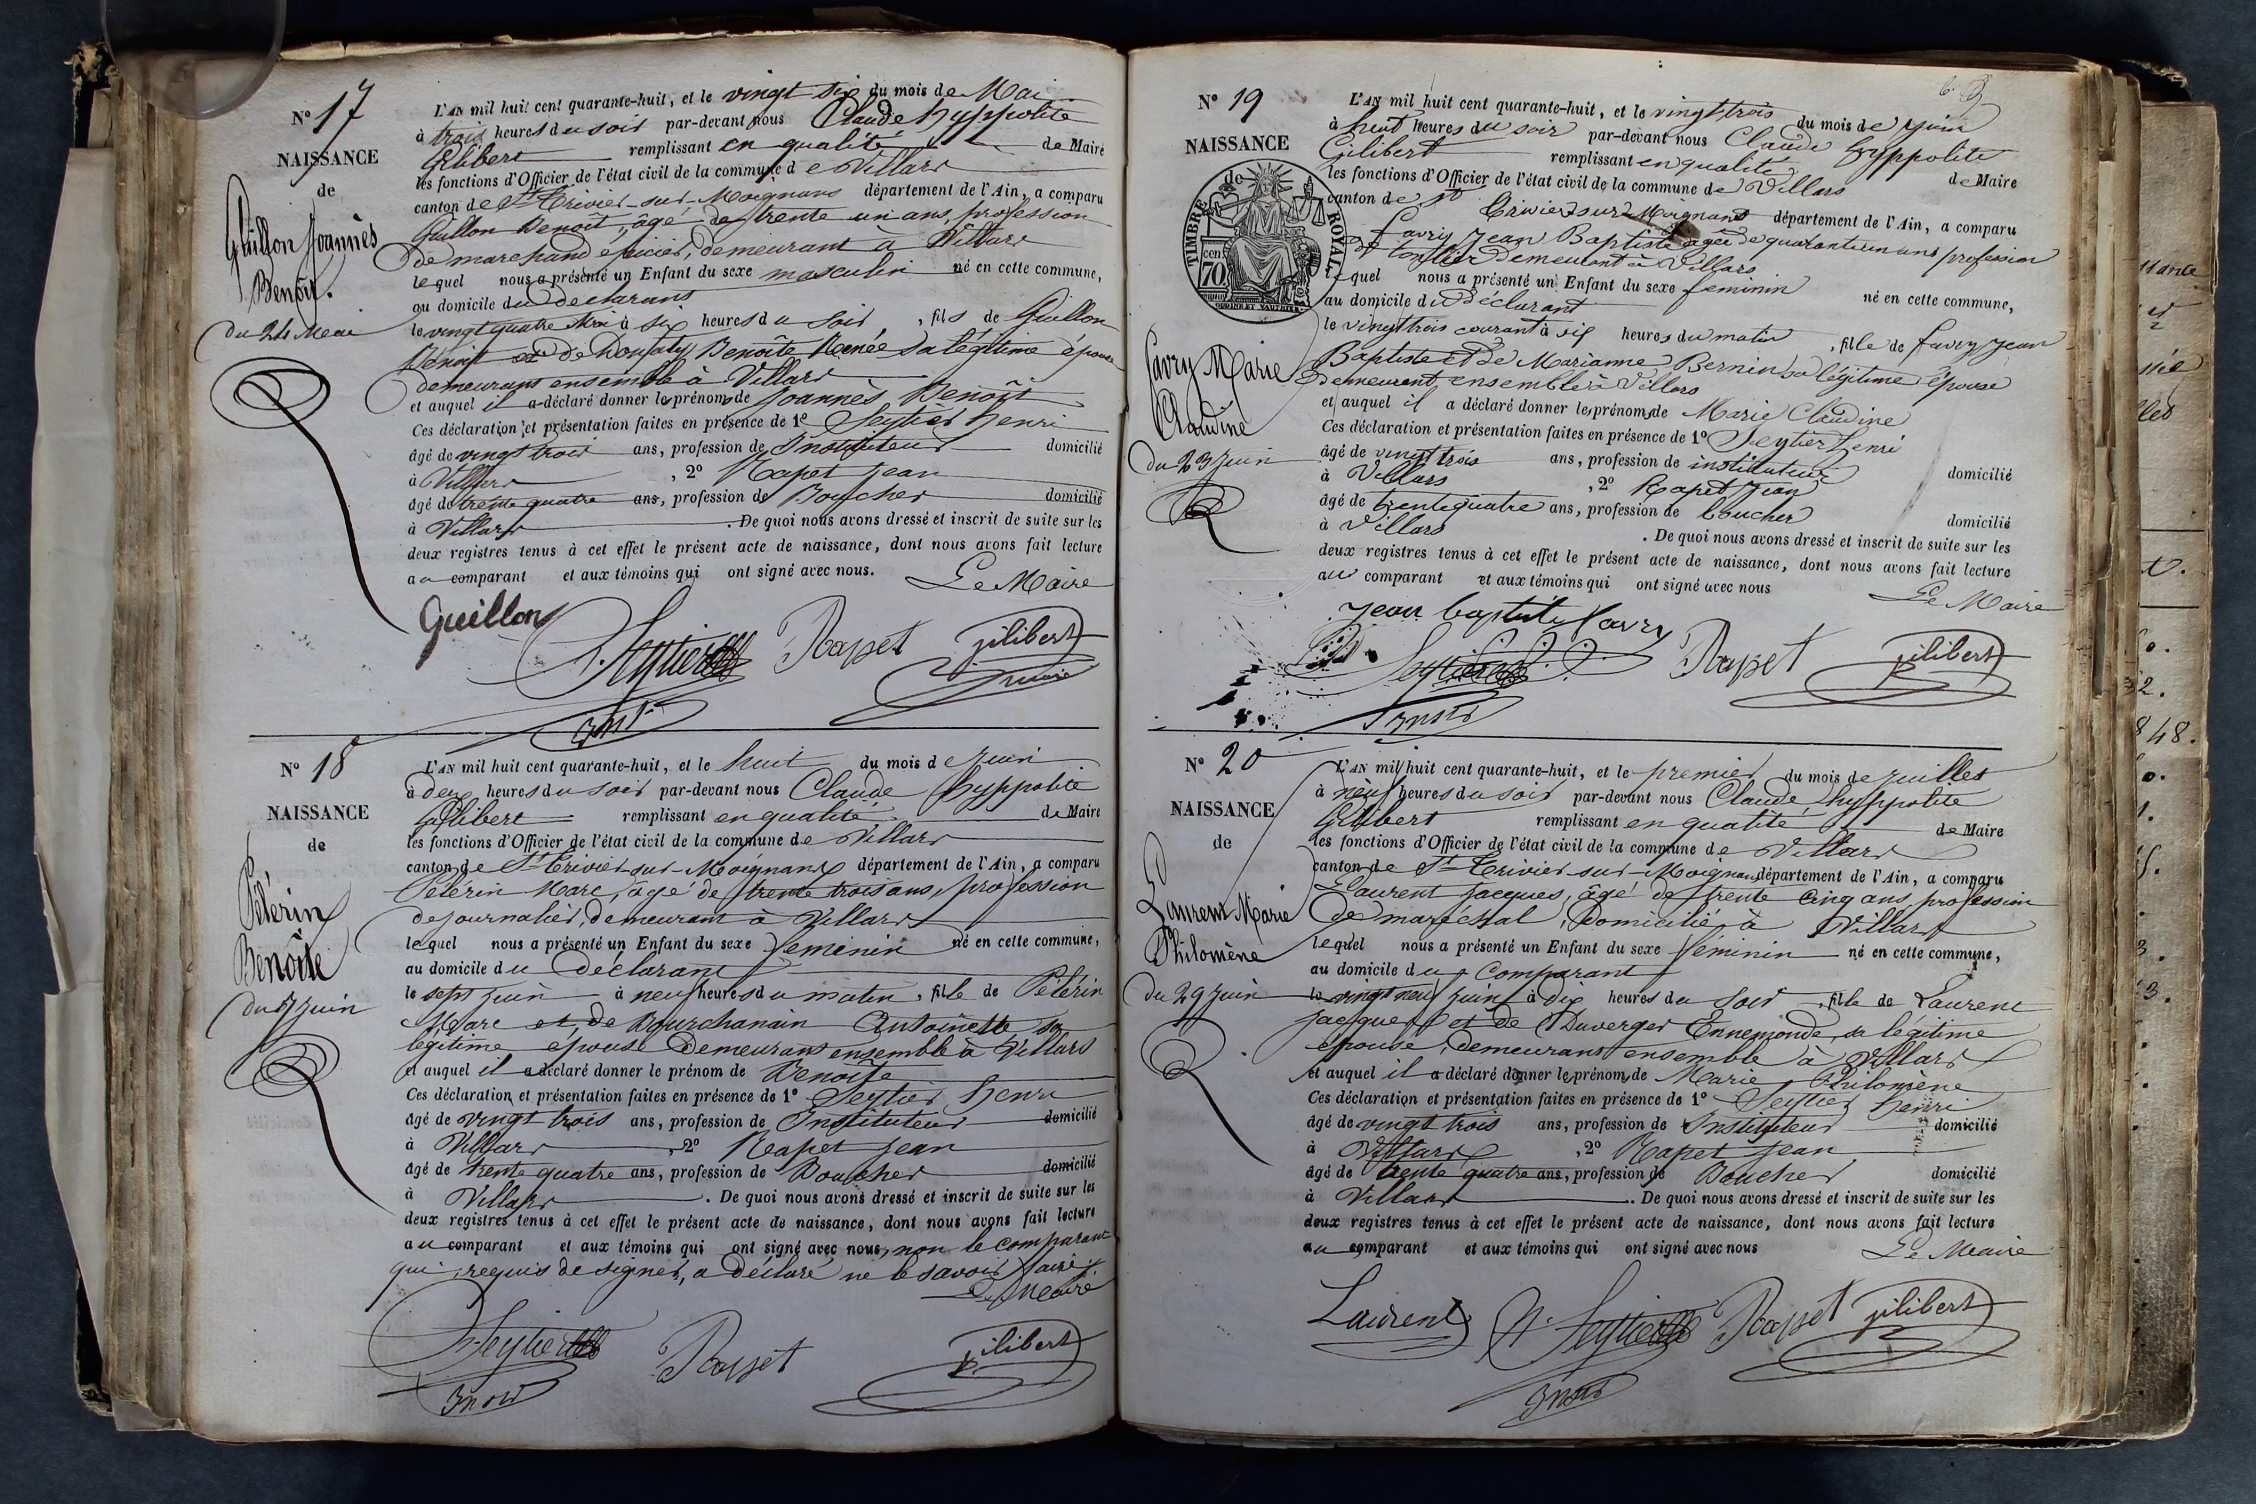 N° 17
NAISSANCE
de
Guillon Joannès
Benoît.
du 24 Mai
L'AN mil huit cent quarante-huit, et le vingt six du mois de Mai
à trois heures du soir par-devant nous Claude hyppolite
Gilibert remplissant en qualité de Maire
les fonctions d'Officier de l'état civil de la commune de Villars
canton de St Trivier-sur-Moignans département de l'Ain, a comparu
Guillon Benoît, âgé de trente un ans, profession
de marchand épicier, demeurant à Villars
lequel nous a présenté un Enfant du sexe masculin né en cette commune,
au domicile du declarant
le vingt quatre Mai à six heures du soir, fils de Guillon
Benoît et de Benoîte Renée sa légitime épouse
demeurans ensemble à Villars
et auquel il a déclaré donner les prénoms de Joannès Benoît
Ces déclaration et présentation faites en présence de 1° Seytier henri
âgé de vingt trois ans, profession de Instituteur domicilié
à Villars, 2° Rapet Jean
âgé de trente quatre ans, profession de Boucher domicilié
à Villars. De quoi nous avons dressé et inscrit de suite sur les
deux registres tenus à cet effet le présent acte de naissance, dont nous avons fait lecture
au comparant et aux témoins qui ont signé avec nous.
Le Maire
Guillon
Seytier Rapet Gilibert
maire
N° 18
NAISSANCE
de
Pélérin
Benoîte
du 7 Juin
L'AN mil huit cent quarante-huit, et le huit du mois de Juin
à deux heures du soir par-devant nous Claude hyppolite
Gilibert remplissant en qualité de Maire
les fonctions d'Officier de l'état civil de la commune de Villars
canton de St Trivier-sur-Moignans département de l'Ain, a comparu
Pélérin Marc, âgé de trente trois ans, profession
de journalier, demeurant à Villars
lequel nous a présenté un Enfant du sexe femenin né en cette commune,
au domicile du déclarant
le sept juin à neuf heures du matin, fille de Pélérin
Marc et de Bourchanain Antoinette sa
légitime epouse demeurans ensemble à Villars
et auquel il a déclaré donner le prénom de Benoîte
Ces déclaration et présentation faites en présence de 1° Seytier henri
âgé de vingt trois ans, profession de Instituteur domicilié
à Villars, 2° Rapet Jean
âgé de trente quatre ans, profession de Boucher domicilié
à Villars. De quoi nous avons dressé et inscrit de suite sur les
deux registres tenus à cet effet le présent acte de naissance, dont nous avons fait lecture
au comparant et aux témoins qui ont signé avec nous, non le comparant
qui, requis de signer, a déclaré ne le savoir faire
Le Maire
Seytier Rapet Gilibert
N° 19
NAISSANCE
de
TIMBRE ROYAL
70 cen
Favry Marie
Claudine
du 23 Juin
L'AN mil huit cent quarante-huit, et le vingt trois du mois de Juin
à huit heures du soir par-devant nous Claude hyppolite
Gilibert remplissant en qualité de Maire
les fonctions d'Officier de l'état civil de la commune de Villars
canton de St Trivier sur Moignans département de l'Ain, a comparu
Favry Jean Baptiste âgé de quarante un ans profession
de demeurant à Villars
lequel nous a présenté un Enfant du sexe feminin né en cette commune,
au domicile du déclarant
le vingt trois courant à six heures du matin, fille de favry Jean
Baptiste et de Marianne Bernin sa légitime épouse
demeurent ensemble à Villars
et auquel il a déclaré donner les prénoms de Marie Claudine
Ces déclaration et présentation faites en présence de 1° Seytier henri
âgé de vingt trois ans, profession de instituteur domicilié
à Villars, 2° Rapet Jean
âgé de trente quatre ans, profession de boucher domicilié
à Villars. De quoi nous avons dressé et inscrit de suite sur les
deux registres tenus à cet effet le présent acte de naissance, dont nous avons fait lecture
au comparant et aux témoins qui ont signé avec nous
Le Maire
Jean baptiste favry
Seytier Rapet Gilibert
N° 20
NAISSANCE
de
Laurent Marie
Philomène
du 29 Juin
L'AN mil huit cent quarante-huit, et le premier du mois de Juillet
à neuf heures du soir par-devant nous Claude hyppolite
Gilibert remplissant en qualité de Maire
les fonctions d'Officier de l'état civil de la commune de Villars
canton de St Trivier-sur-Moignans département de l'Ain, a comparu
Laurent Jacques, âgé de trente cinq ans, profession
de marechal, domicilié à Villars
lequel nous a présenté un Enfant du sexe féminin né en cette commune,
au domicile du comparant
le vingt neuf juin à dix heures du soir, fille de Laurent
Jacques et de Duverger Ennemonde, sa légitime
epouse, demeurans ensemble à Villars
et auquel il a déclaré donner les prénoms de Marie Philomène
Ces déclaration et présentation faites en présence de 1° Seytier henri
âgé de vingt trois ans, profession de Instituteur domicilié
à Villars, 2° Rapet Jean
âgé de trente quatre ans, profession de Boucher domicilié
à Villars. De quoi nous avons dressé et inscrit de suite sur les
deux registres tenus à cet effet le présent acte de naissance, dont nous avons fait lecture
au comparant et aux témoins qui ont signé avec nous
Le Maire
Laurent H. Seytier Rapet Gilibert